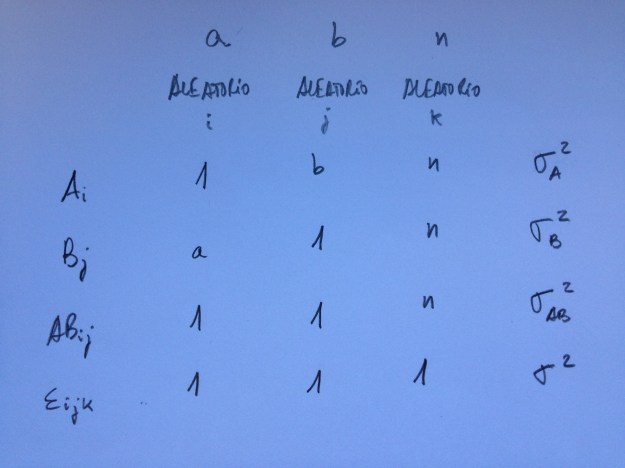 a b n
ALEATORIO ALEATORIO ALEATORIO
i j k
Aᵢ 1 b n σ_A²
Bⱼ a 1 n σ_B²
ABᵢⱼ 1 1 n σ_AB²
εᵢⱼₖ 1 1 1 σ²